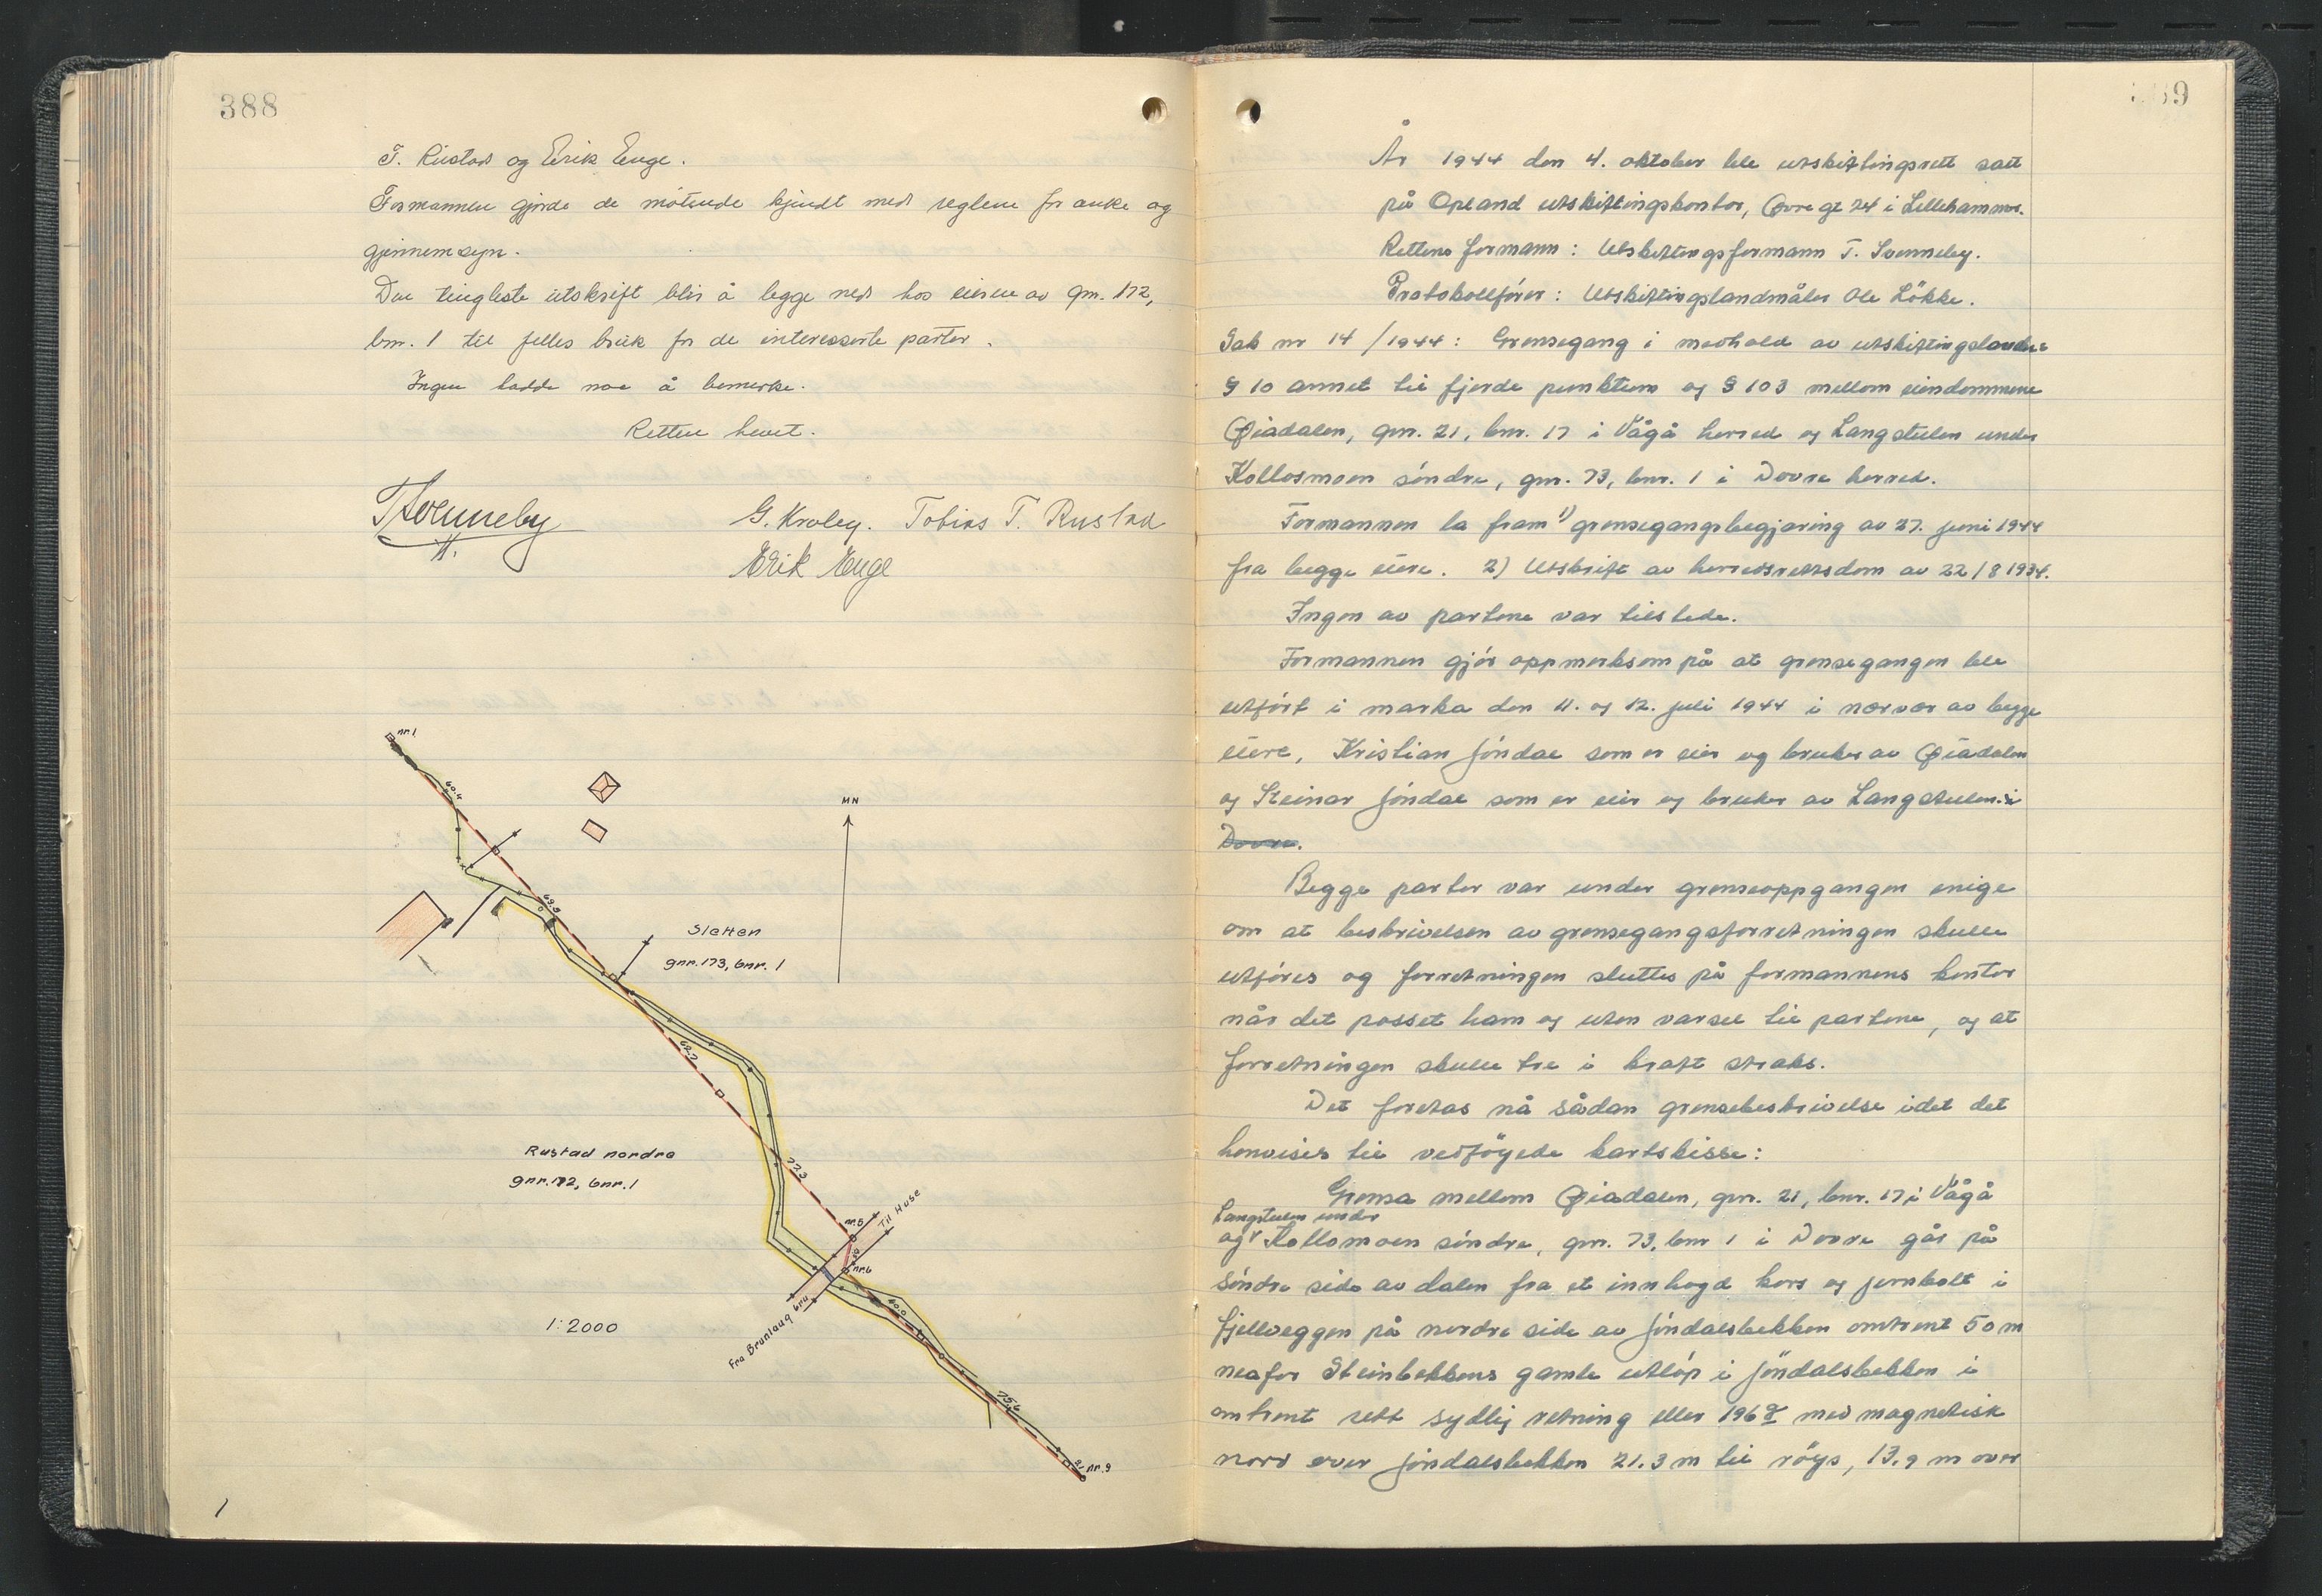 388
T. Rustad og Erik Enge.
Formannen gjorde de møtende kjendt med reglene for anke og
gjennemsyn.
Den tingleste utskrift blir å legge ned hos eieren av gnr. 172,
bnr. 1 til felles bruk for de interesserte parter.
Ingen hadde noe å bemerke.
Retten hevet.
T. Svenneby
G. Kroløy. Tobias T. Rustad
Erik Enge
nr.1
60.4
MN
69.9
Sletten
gnr.173, bnr. 1
69.7
Rustad nordre
gnr.172, bnr.1
72.3
nr.5
Til Huse
nr.6
1:2000
Fra Brunlaug bru
40.0
75.6
nr.9
389
År 1944 den 4. oktober ble utskiftingsrett satt
på Opland utskiftingskontor, Øvre gt 24 i Lillehammer.
Rettens formann: Utskiftingsformann T. Svenneby.
Protokollfører: Utskiftingslandmåler Ole Løkke.
Sak nr 14/1944: Grensegang i medhold av utskiftingslovens
§ 10 annet til fjerde punktum og § 103 mellom eiendommene
Øiadalen, gnr. 21, bnr. 17 i Vågå herred og Langstulen under
Kollosmoen søndre, gnr. 73, bnr. 1 i Dovre herred.
Formannen la fram 1) grensegangsbegjæring av 27. juni 1944
fra begge eiere. 2) Utskrift av herredsrettsdom av 22/8 1934.
Ingen av partene var tilstede.
Formannen gjør oppmerksom på at grensegangen ble
utført i marka den 11. og 12. juli 1944 i nærvær av begge
eiere, Kristian Jøndal som er eier og bruker av Øiadalen
og Steinar Jøndal som er eier og bruker av Langstulen. i
Dovre.
Begge parter var under grenseoppgangen enige
om at beskrivelsen av grensegangsforretningen skulle
utføres og forretningen sluttes på formannens kontor
når det passet ham og uten varsel til partene, og at
forretningen skulle tre i kraft straks.
Det foretas nå sådan grensebeskrivelse idet det
henvises til vedføyede kartskisse:
Grensa mellom Øiadalen, gnr. 21, bnr. 17 i Vågå
Langstulen under
og Kollomoen søndre, gnr. 73, bnr 1 i Dovre går på
søndre side av dalen fra et innhogd kors og jernbolt i
fjellveggen på nordre side av Jøndalsbekken omtrent 50 m
neafor Steinbekkens gamle utløp i Jøndalsbekken i
omtrent rett sydlig retning eller 196g med magnetisk
nord over Jøndalsbekken 21.3 m til røys, 13.9 m over